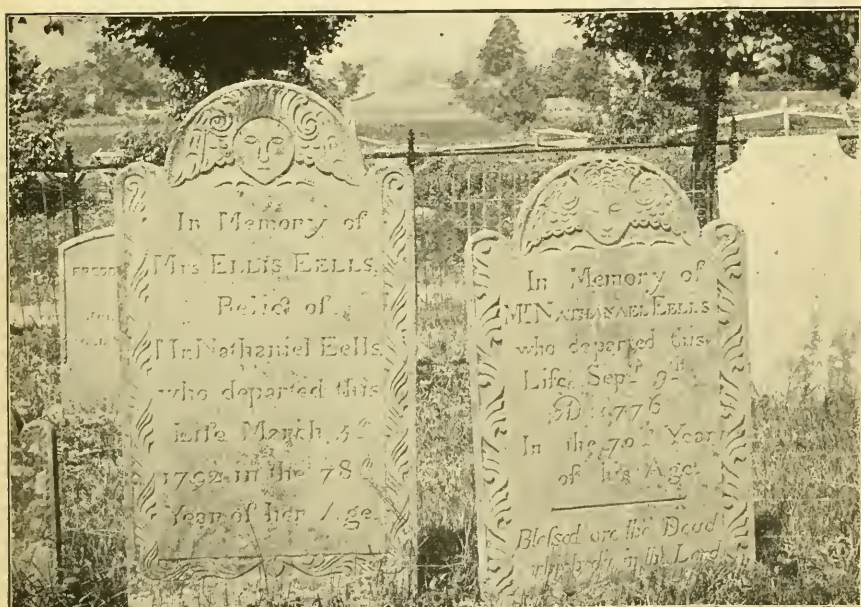 In Memory of
Mrs ELLIS EELLS,
Relict of
Mr Nathaniel Eells
who departed this
Life March 5th
1792 in the 78th
Year of her Age
In Memory of
Mr NATHANAEL EELLS
who departed this
Life Sept 9th
AD 1776
In the 70th Year
of his Age.
Blessed are the Dead
who die in the Lord